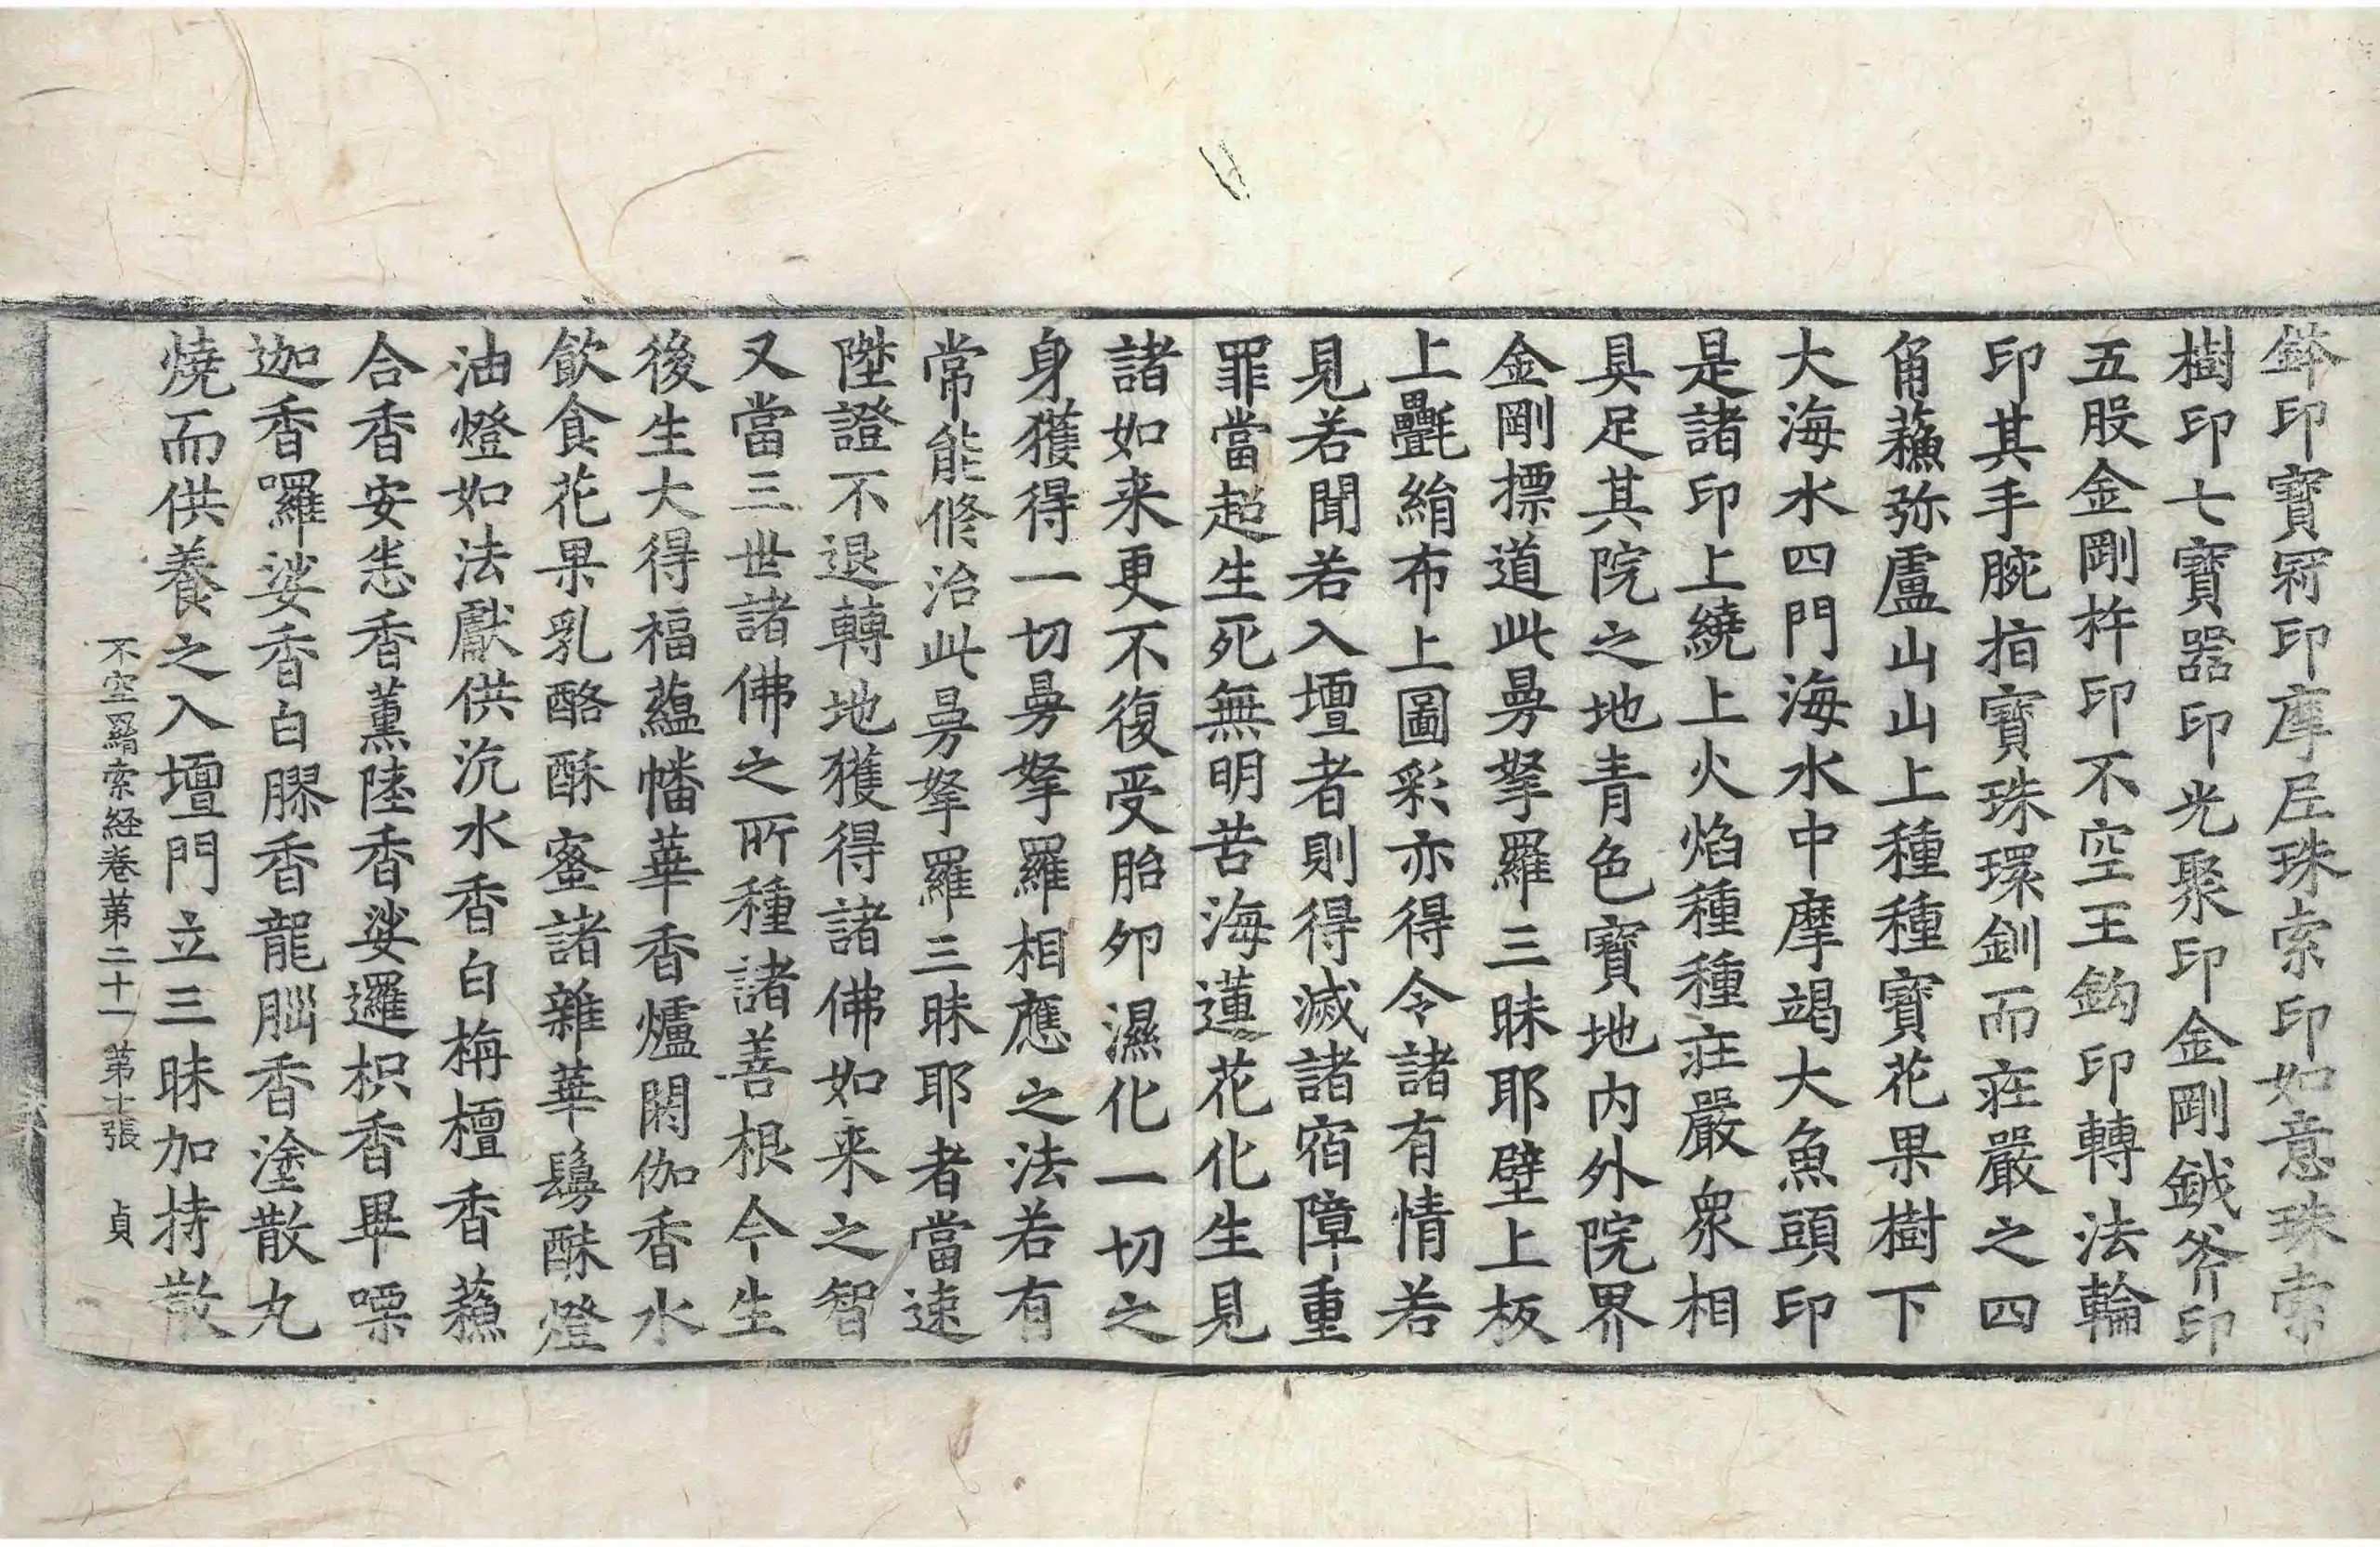 鉢印寶冠印摩尼珠索印如意珠索
樹印七寶器印光聚印金剛鉞斧印
五股金剛杵印不空王鉤印轉法輪
印其手腕指寶珠環釧而莊嚴之四
角蘓弥盧山山上種種寶花果樹下
大海水四門海水中摩竭大魚頭印
是諸印上繞上火焰種種莊嚴衆相
具足其院之地青色寶地內外院界
金剛摽道此曼拏羅三昧耶壁上板
上㲲絹布上圖彩亦得令諸有情若
見若聞若入壇者則得滅諸宿障重
罪當超生死無明苦海蓮花化生見
諸如来更不復受胎卵濕化一切之
身獲得一切曼拏羅相應之法若有
常能修治此曼拏羅三昧耶者當速
陞證不退轉地獲得諸佛如来之智
又當三世諸佛之所種諸善根今生
後生大得福蘊幡華香爐閼伽香水
飲食花果乳酪酥蜜諸雜華鬘酥燈
油燈如法獻供沉水香白栴檀香蘓
合香安悉香薰陸香娑邏枳香畢㗚
迦香囉娑香白膠香龍腦香塗散丸
燒而供養之入壇門立三昧加持散
不空羂索経卷苐二十一 第十張 貞